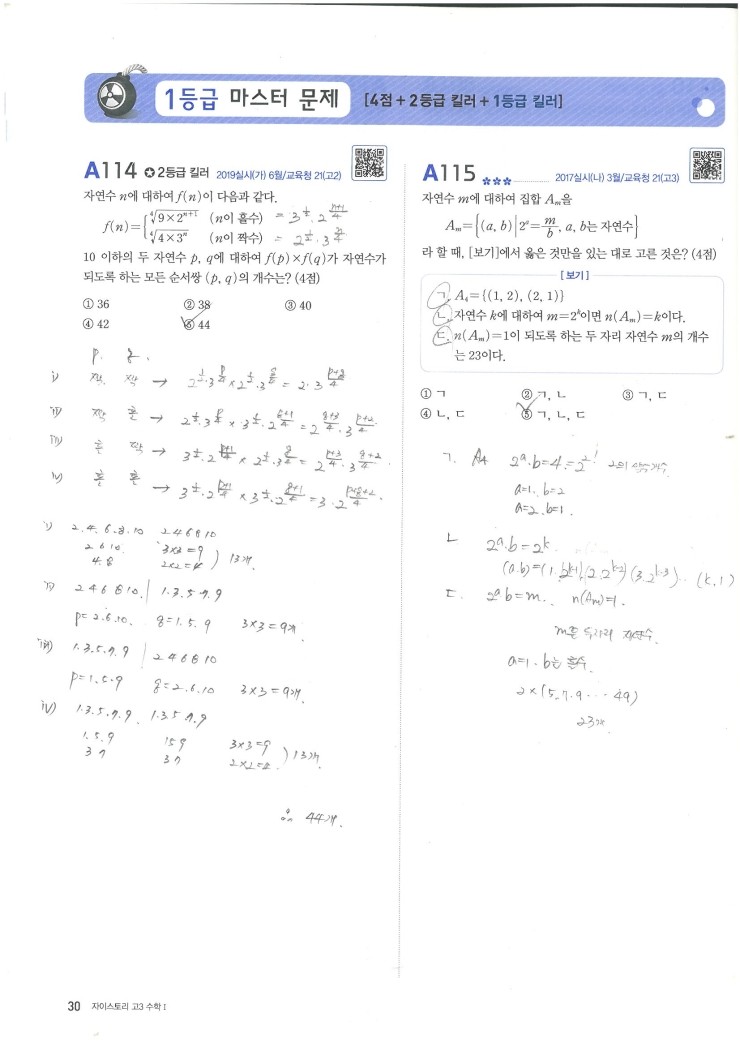 1등급 마스터 문제 [4점 + 2등급 킬러 + 1등급 킬러]
A114 ✪ 2등급 킬러 2019실시(가) 6월/교육청 21(고2)
자연수 n에 대하여 f(n)이 다음과 같다.
f(n)={ ∜(9×2ⁿ⁺¹) (n이 홀수) = 3^½·2^((n+1)/4)
∜(4×3ⁿ) (n이 짝수) = 2^½·3^(n/4)
10 이하의 두 자연수 p, q에 대하여 f(p)×f(q)가 자연수가
되도록 하는 모든 순서쌍 (p, q)의 개수는? (4점)
① 36 ② 38 ③ 40
④ 42 ⑤ 44
p. q.
i) 짝. 짝 → 2^½·3^(p/4) × 2^½·3^(q/4) = 2·3^((p+q)/4)
ii) 짝 홀 →
iii) 홀 짝 →
iv) 홀 홀 →
i) 2.4.6.8.10 2 4 6 8 10
2 6 10. 3×3=9
4.8 2×2=4 ) 13개.
ii) 2 4 6 8 10. | 1.3.5.7.9
p=2.6.10. q=1.5.9 3×3=9개
iii) 1.3.5.7.9 | 2 4 6 8 10
p=1.5.9 q=2.6.10 3×3=9개.
iv) 1.3.5.7.9. 1.3.5.7.9
1.5.9 1 5 9 3×3=9
3 7 3 7 2×2=4. ) 13개.
∴ 44개.
A115 ✱✱✱ 2017실시(나) 3월/교육청 21(고3)
자연수 m에 대하여 집합 Aₘ을
Aₘ={(a, b) | 2ᵃ=m/b, a, b는 자연수}
라 할 때, [보기]에서 옳은 것만을 있는 대로 고른 것은? (4점)
[보기]
ㄱ. A₄={(1, 2), (2, 1)}
ㄴ. 자연수 k에 대하여 m=2ᵏ이면 n(Aₘ)=k이다.
ㄷ. n(Aₘ)=1이 되도록 하는 두 자리 자연수 m의 개수
는 23이다.
① ㄱ ② ㄱ, ㄴ ③ ㄱ, ㄷ
④ ㄴ, ㄷ ⑤ ㄱ, ㄴ, ㄷ
ㄱ. A₄ 2ᵃ·b=4=2²
a=1. b=2
a=2. b=1.
ㄴ 2ᵃ·b=2ᵏ.
(a.b)=(1.2ᵏ⁻¹)(2.2ᵏ⁻²)(3.2ᵏ⁻³)... (k,1)
ㄷ. 2ᵃ·b=m. n(Aₘ)=1.
m은 두자리 자연수.
a=1. b는 홀수.
2×(5.7.9...49)
23개.
30 자이스토리 고3 수학 Ⅰ